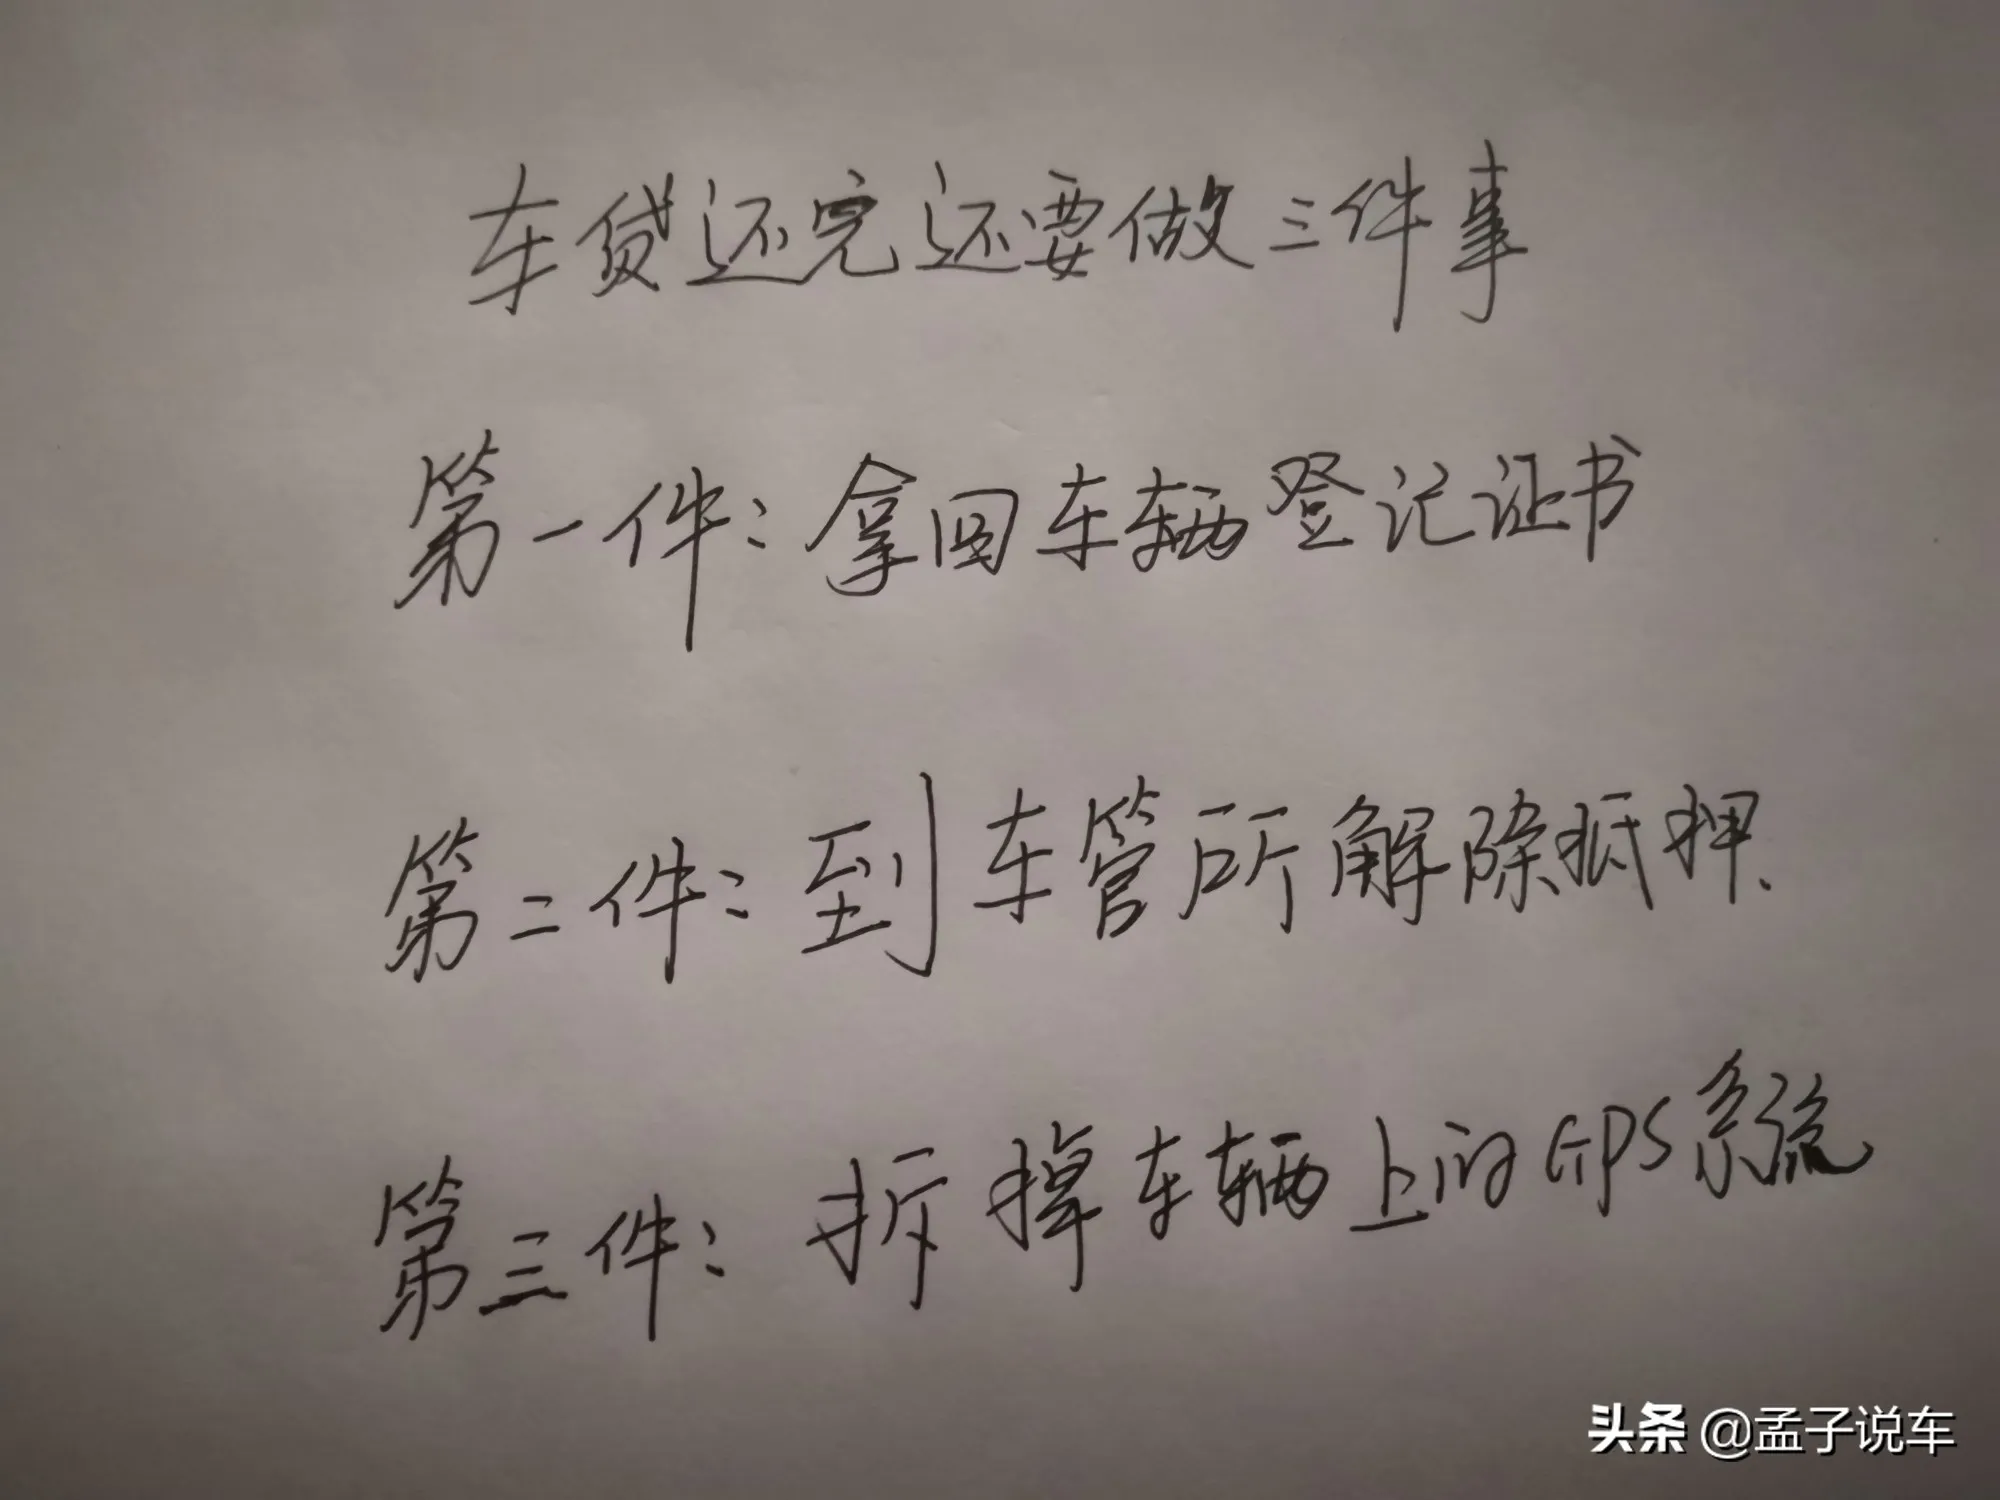 车贷还完还要做三件事
第一件:拿回车辆登记证书
第二件:到车管所解除抵押.
第三件:拆掉车辆上的GPS系统
头条 @孟子说车